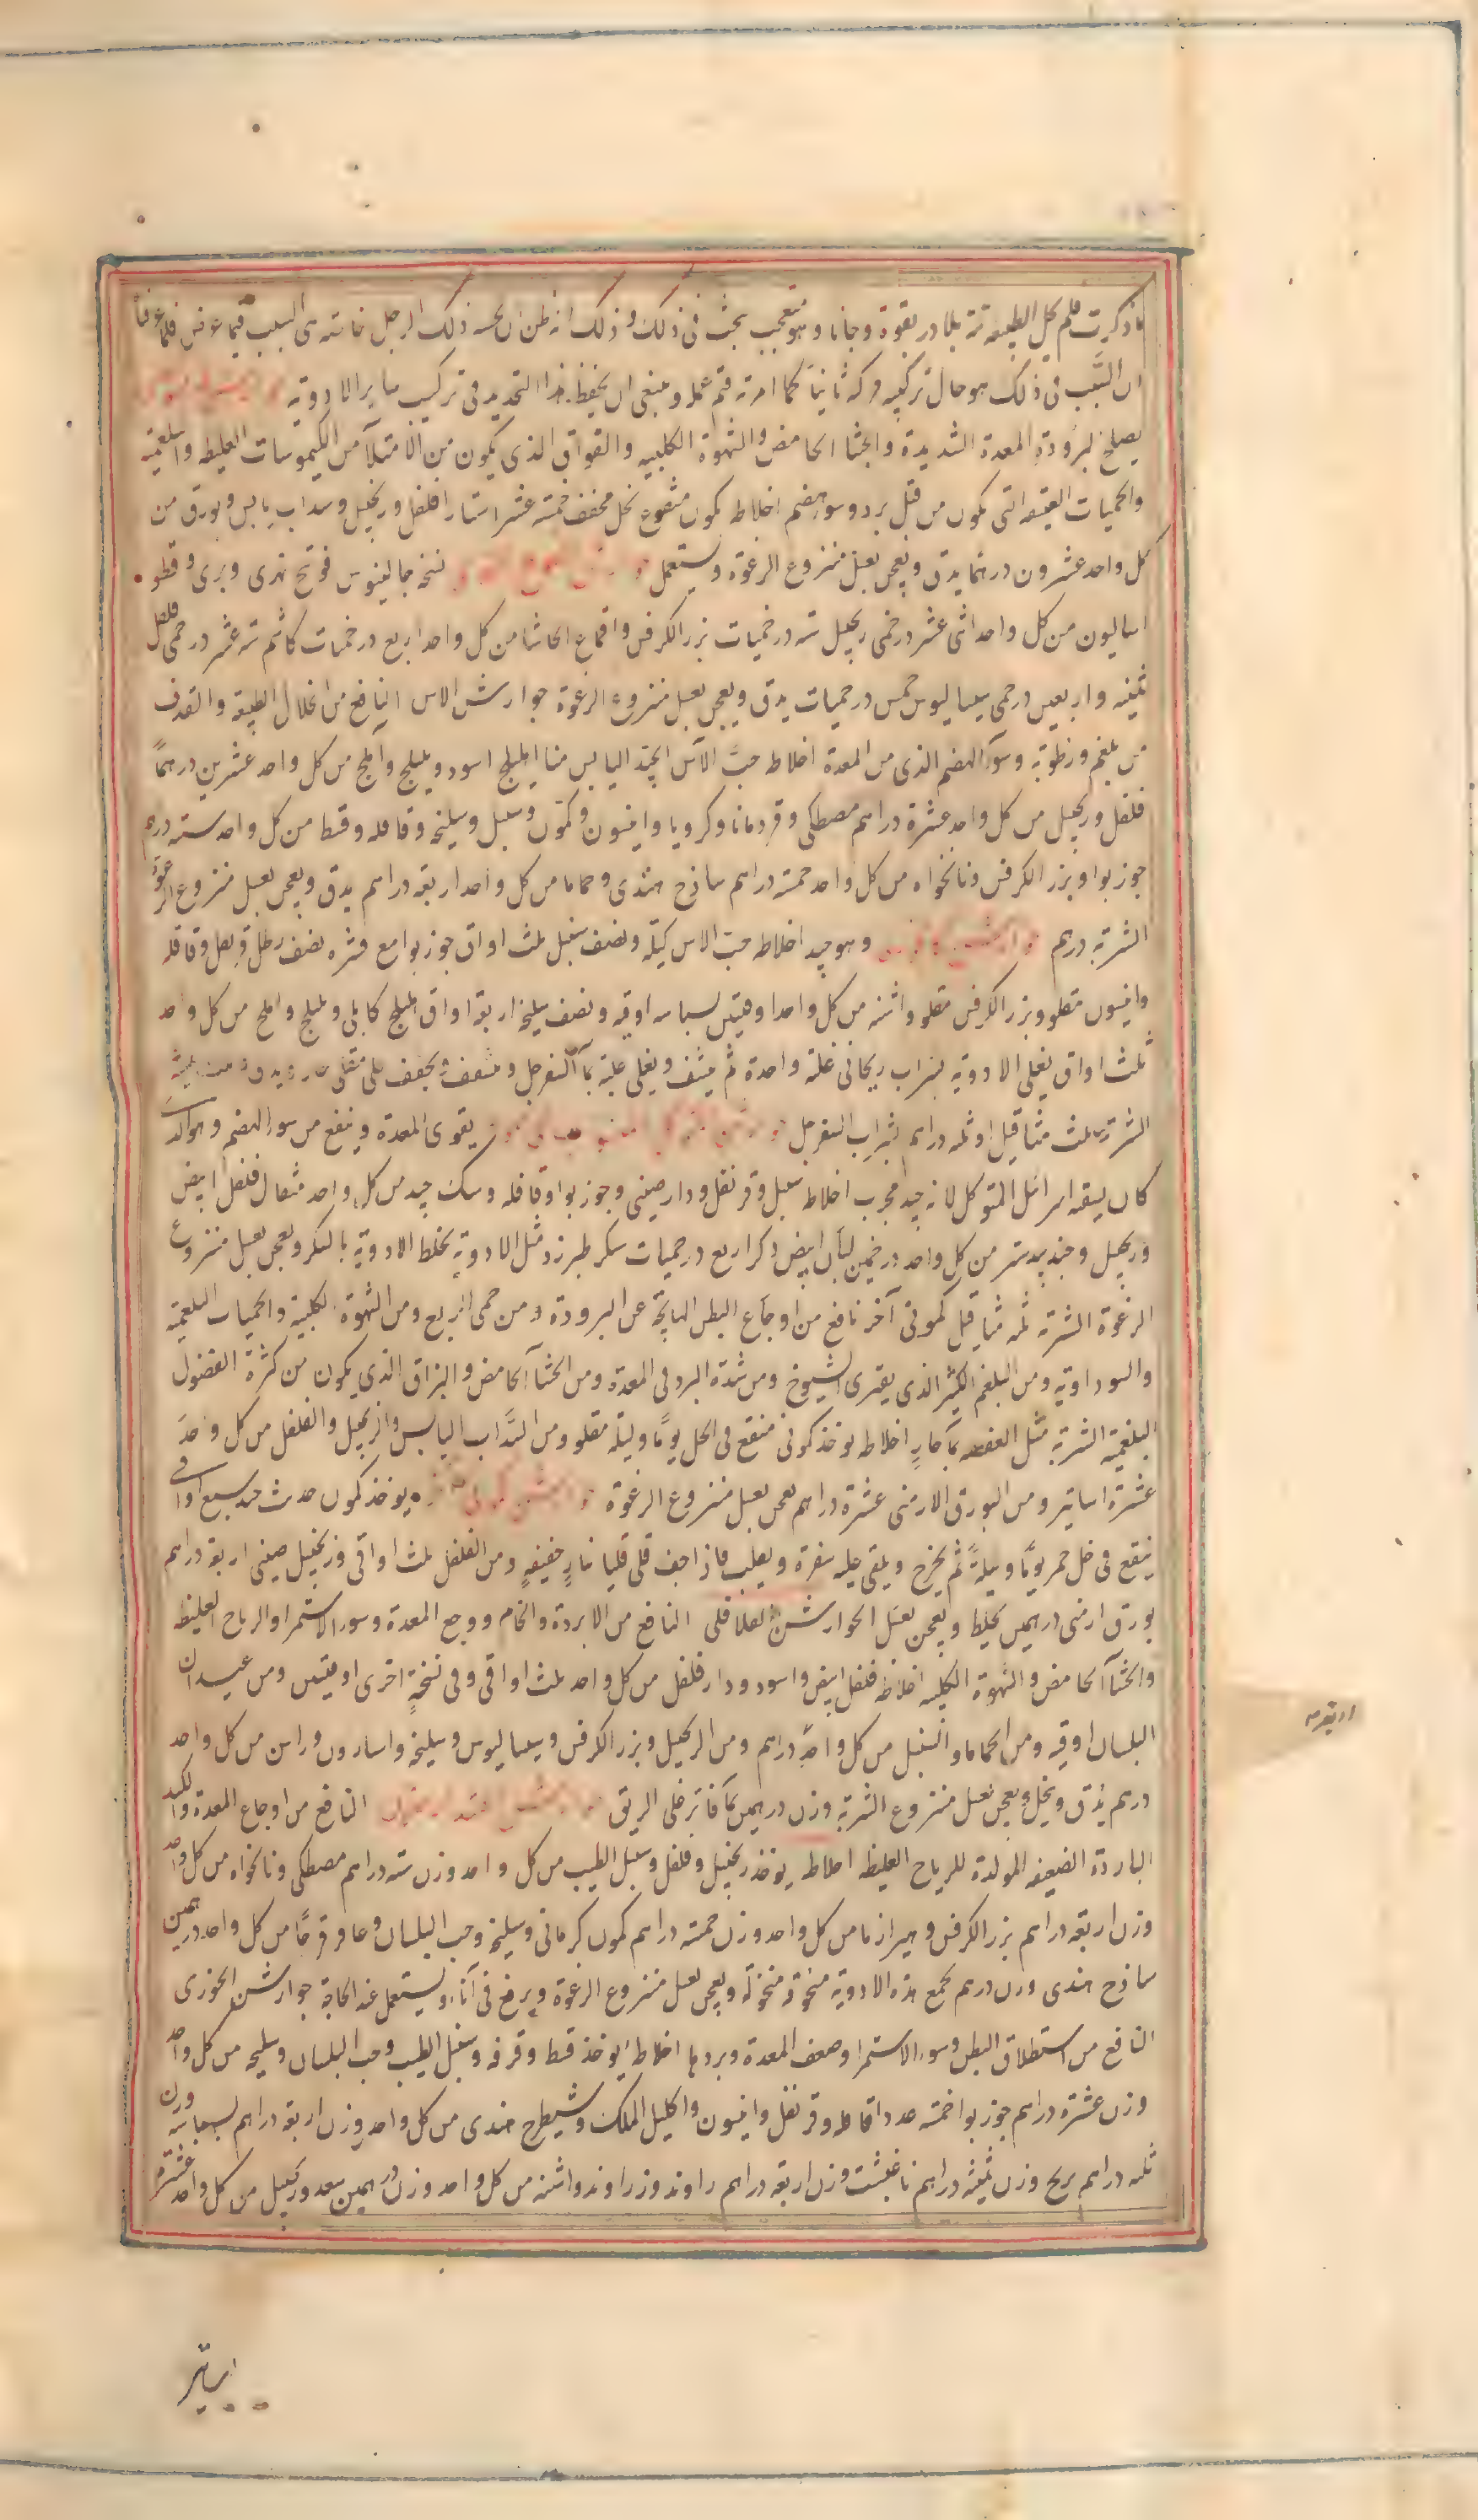 ما ذكرت فلم يحل الطبيعة تة بلا در بقوة وجانا وهو متعجب بحث فى ذلك وذلك انه ظن ان لحسد ذلك الرجل خاصته هى السبب فيما عرض فلما عرفنا
ان السَّبب فى ذلك هو حال تركيبه ركبه ثانياً كما امرته فتم عمله وينبغى ان يحفظ هذا التحديد فى تركيب ساير الادوية
يصلح لبرودة المعدة الشديدة والجشا الحامض والشهوة الكلبيه والفواق الذى يكون من الامتلآ من الكيموسات الغليظه والبلغمية
والحميات العتيقه التى تكون من قبل برد وسو هضم اخلاطه كمون منقوع بخل مجفف خمسة عشر استارا فلفل وزنجبيل وسداب يابس وبورق من
كل واحد عشرون درهما يدق ويعجن بعسل منزوع الرغوة ويستعمل نسخه جالينوس فوتنج نهرى وبرى وفطر
اساليون من كل واحد اثنى عشر درخمى زنجبيل سته درخميات بزر الكرفس واقماع الحاشا من كل واحد اربع درخميات كاشم سته عشر درخمى فلفل
ثمنيه واربعين درخمى سيساليوس خمس درخميات يدق ويعجن بعسل منزوع الرغوة جوارشن الاس النافع من انحلال الطبيعة والقذف
من بلغم ورطوبة وسوء الهضم الذى من المعدة اخلاطه حبّ الآس الجيّد اليابس منا اهليلج اسود وبليلج وآملج من كل واحد عشرين درهماً
فلفل وزنجبيل من كل واحد عشرة دراهم مصطكى وقردمانا وكرويا وانيسون وكمون وسنبل وسليخه وقاقله وقسط من كل واحد سته دراهم
جوز بوا وبزر الكرفس ونانخواه من كل واحد خمسة دراهم ساذج هندى وحماما من كل واحد اربعة دراهم يدق ويعجن بعسل منزوع الرغوة
الشربة درهم وهو جيد اخلاطه حب الاس كيلة ونصف سنبل ثلث اواق جوز بوا مع قشره نصف رطل قرنفل وقاقله
وانيسون مقلو وبزر الكرفس مقلو واشنه من كل واحد اوقيتين بسباسه اوقيه ونصف سليخه اربعة اواق اهليلج كابلى وبليلج واملج من كل واحد
ثلث اواق يغلى الادوية بشراب ريحانى غلية واحدة ثم ينشف ويغلى علية بمآ السفرجل وينشف ويجفف على مقلى
الشربة ثلث مثاقيل او ثلثه دراهم بشراب السفرجل يقوى المعدة وينفع من سوء الهضم وهو الذى
كان يسقيه اسرائيل المتوكل لانه جيد مجرب اخلاطه سنبل وقرنفل ودارصينى وجوز بوا وقاقله وسك جيد من كل واحد مثقال فلفل ابيض
وزنجبيل وجندبيدستر من كل واحد درخمين لبان ابيض ذكر اربع درخميات سكر طبرزد مثل الادوية يخلط الادوية بالسكر ويعجن بعسل منزوع
الرغوة الشربة ثلثه مثاقيل كمونى آخر نافع من اوجاع البطن الهايجة عن البرودة ومن حمى الربع ومن الشهوة الكلبية والحميات البلغمية
والسوداوية ومن البلغم الكثير الذى يعترى الشيوخ ومن شدة البرد فى المعدة ومن الجشآ الحامض والبزاق الذى يكون من كثرة الفضول
البلغمية الشربة مثل العفصه بمآ حارٍ اخلاطه يوخذ كمون منقع فى الخل يوماً وليلة مقلو ومن السَّداب اليابس والزنجبيل والفلفل من كل واحد
عشرة اساتير ومن البورق الارمنى عشرة دراهم يعجن بعسل منزوع الرغوة يوخذ كمون حديث جيد سبع اواقى
ينقع فى خل خمر يوماً وليلةً ثم يخرج ويلقى عليه سفرة ويقلب فاذا جف قلى قليا بنارٍ خفيفةٍ ومن الفلفل ثلث اواقى وزنجبيل صينى اربعة دراهم
بورق ارمنى درهمين يخلط ويعجن بعسل الجوارشن الفلافلى النافع من الابردة والخام ووجع المعدة وسوء الاستمرا والرياح الغليظه
والجشآ الحامض والشهوة الكلبيه اخلاطه فلفل ابيض واسود ودارفلفل من كل واحد ثلث اواقى وفى نسخةٍ اخرى اوقيتين ومن عيدان
البلسان اوقيه ومن الحماما والسنبل من كل واحدٍ دراهم ومن الزنجبيل وبزر الكرفس وسيساليوس وسليخه واسارون وراسن من كل واحد
درهم يُدق وينخل ويعجن بعسل منزوع الشربة وزن درهمين بمآ فاتر على الريق النافع من اوجاع المعدة والكبد
الباردة الضعيفه المولدة للرياح الغليظه اخلاطه يوخذ زنجبيل وفلفل وسنبل الطيب من كل واحد وزن سته دراهم مصطكى ونانخواه من كل واحد
وزن اربعة دراهم بزر الكرفس وبيرازما من كل واحد وزن خمسة دراهم كمون كرمانى وسليخه وحب البلسان وعاقرقرحا من كل واحد درهمين
ساذج هندى وزن درهم تجمع هذه الادوية مسحوقة منخولة ويعجن بعسل منزوع الرغوة ويرفع فى آناء ويستعمل عند الحاجة جوارشن الخوزى
النافع من استطلاق البطن وسوء الاستمرا وضعف المعدة وبردها اخلاطه يوخذ قسط وقرفه وسنبل الطيب وحب البلسان وسليخه من كل واحد
وزن عشرة دراهم جوز بوا خمسه عددا قاقله وقرنفل وانيسون واكليل الملك وشيطرج هندى من كل واحد وزن اربعة دراهم بسباسه وزن
ثلثه دراهم برنج وزن ثلثه دراهم نارمشك وزن اربعة دراهم راوند وزراوند واشنه من كل واحد وزن درهمين سعد وزنجبيل من كل واحد عشرة
اساتير